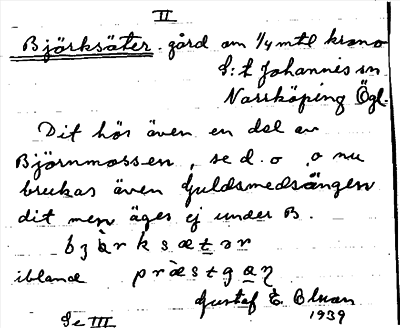 II
Björksäter. gård om 1/4 mtl krono
S:t Johannis sn
Norrköping Ögl.
Dit hör även en del av
Björnmossen, se d. o, o nu
brukas även Guldsmedsängen
dit men äges ej under B.
bjàrksætər
ibland præ̀stgaŋ
Gustaf E. Bluan
Se III 1939